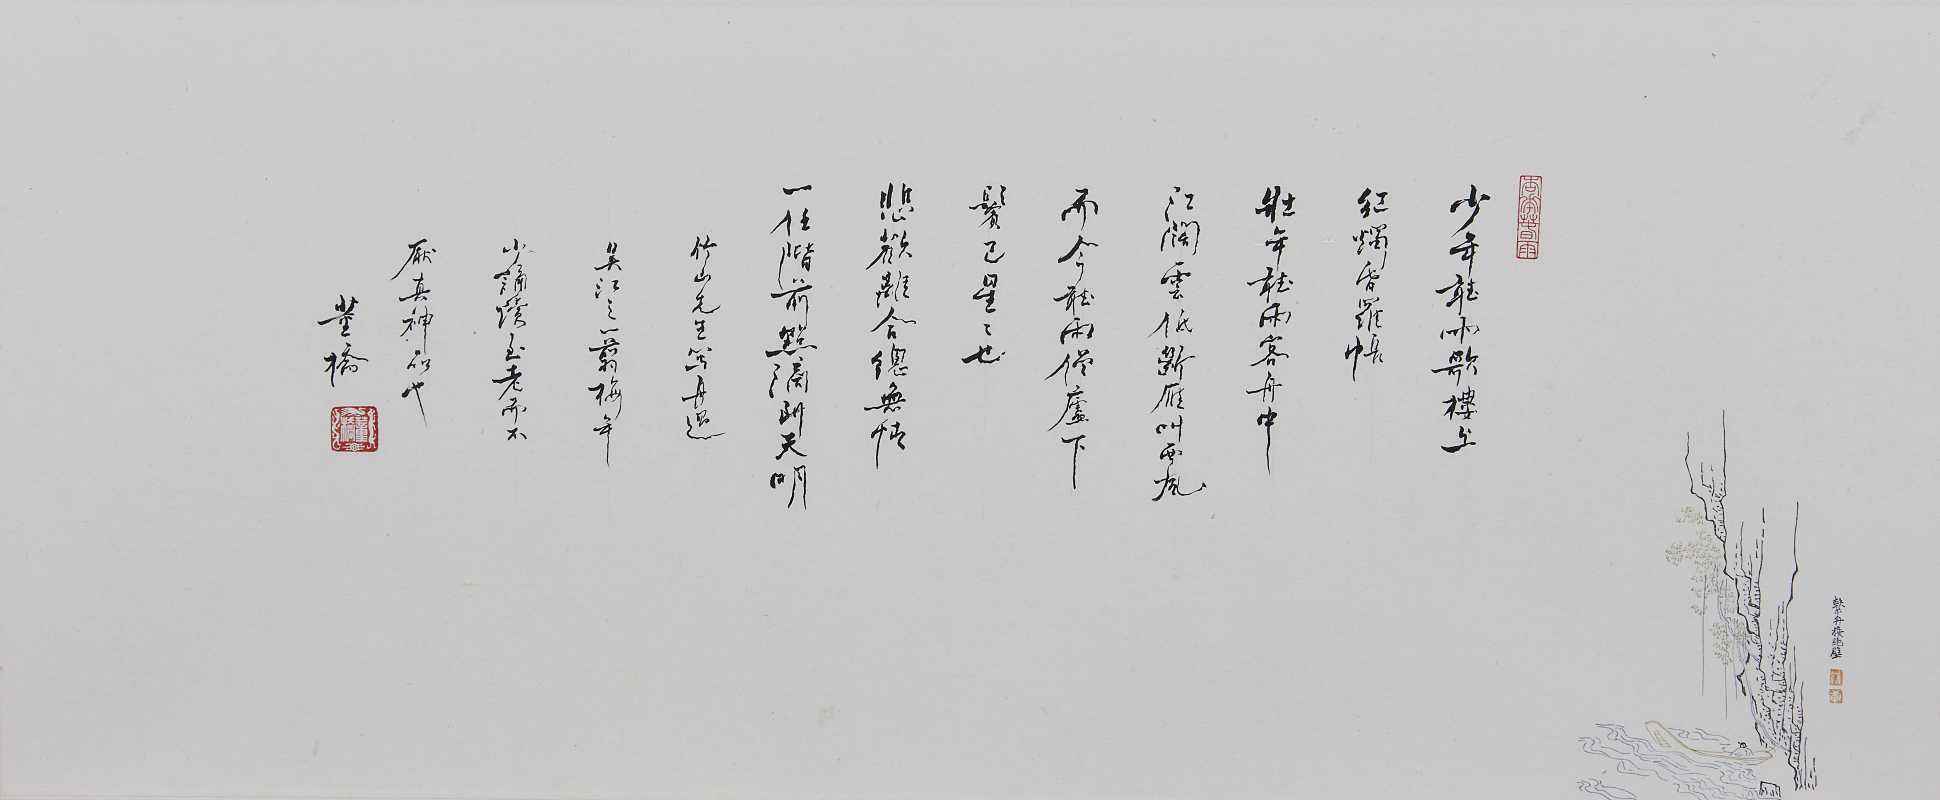 少年聽雨歌樓上
紅燭昏羅帳
壯年聽雨客舟中
江闊雲低斷雁叫西風
而今聽雨僧廬下
鬢已星〻也
悲歡離合總無情
一任階前點滴到天明
竹山先生寫舟過
吳江之一翦梅年
少誦讀至老而不
厭真神品也
董橋
繫舟接絕壁